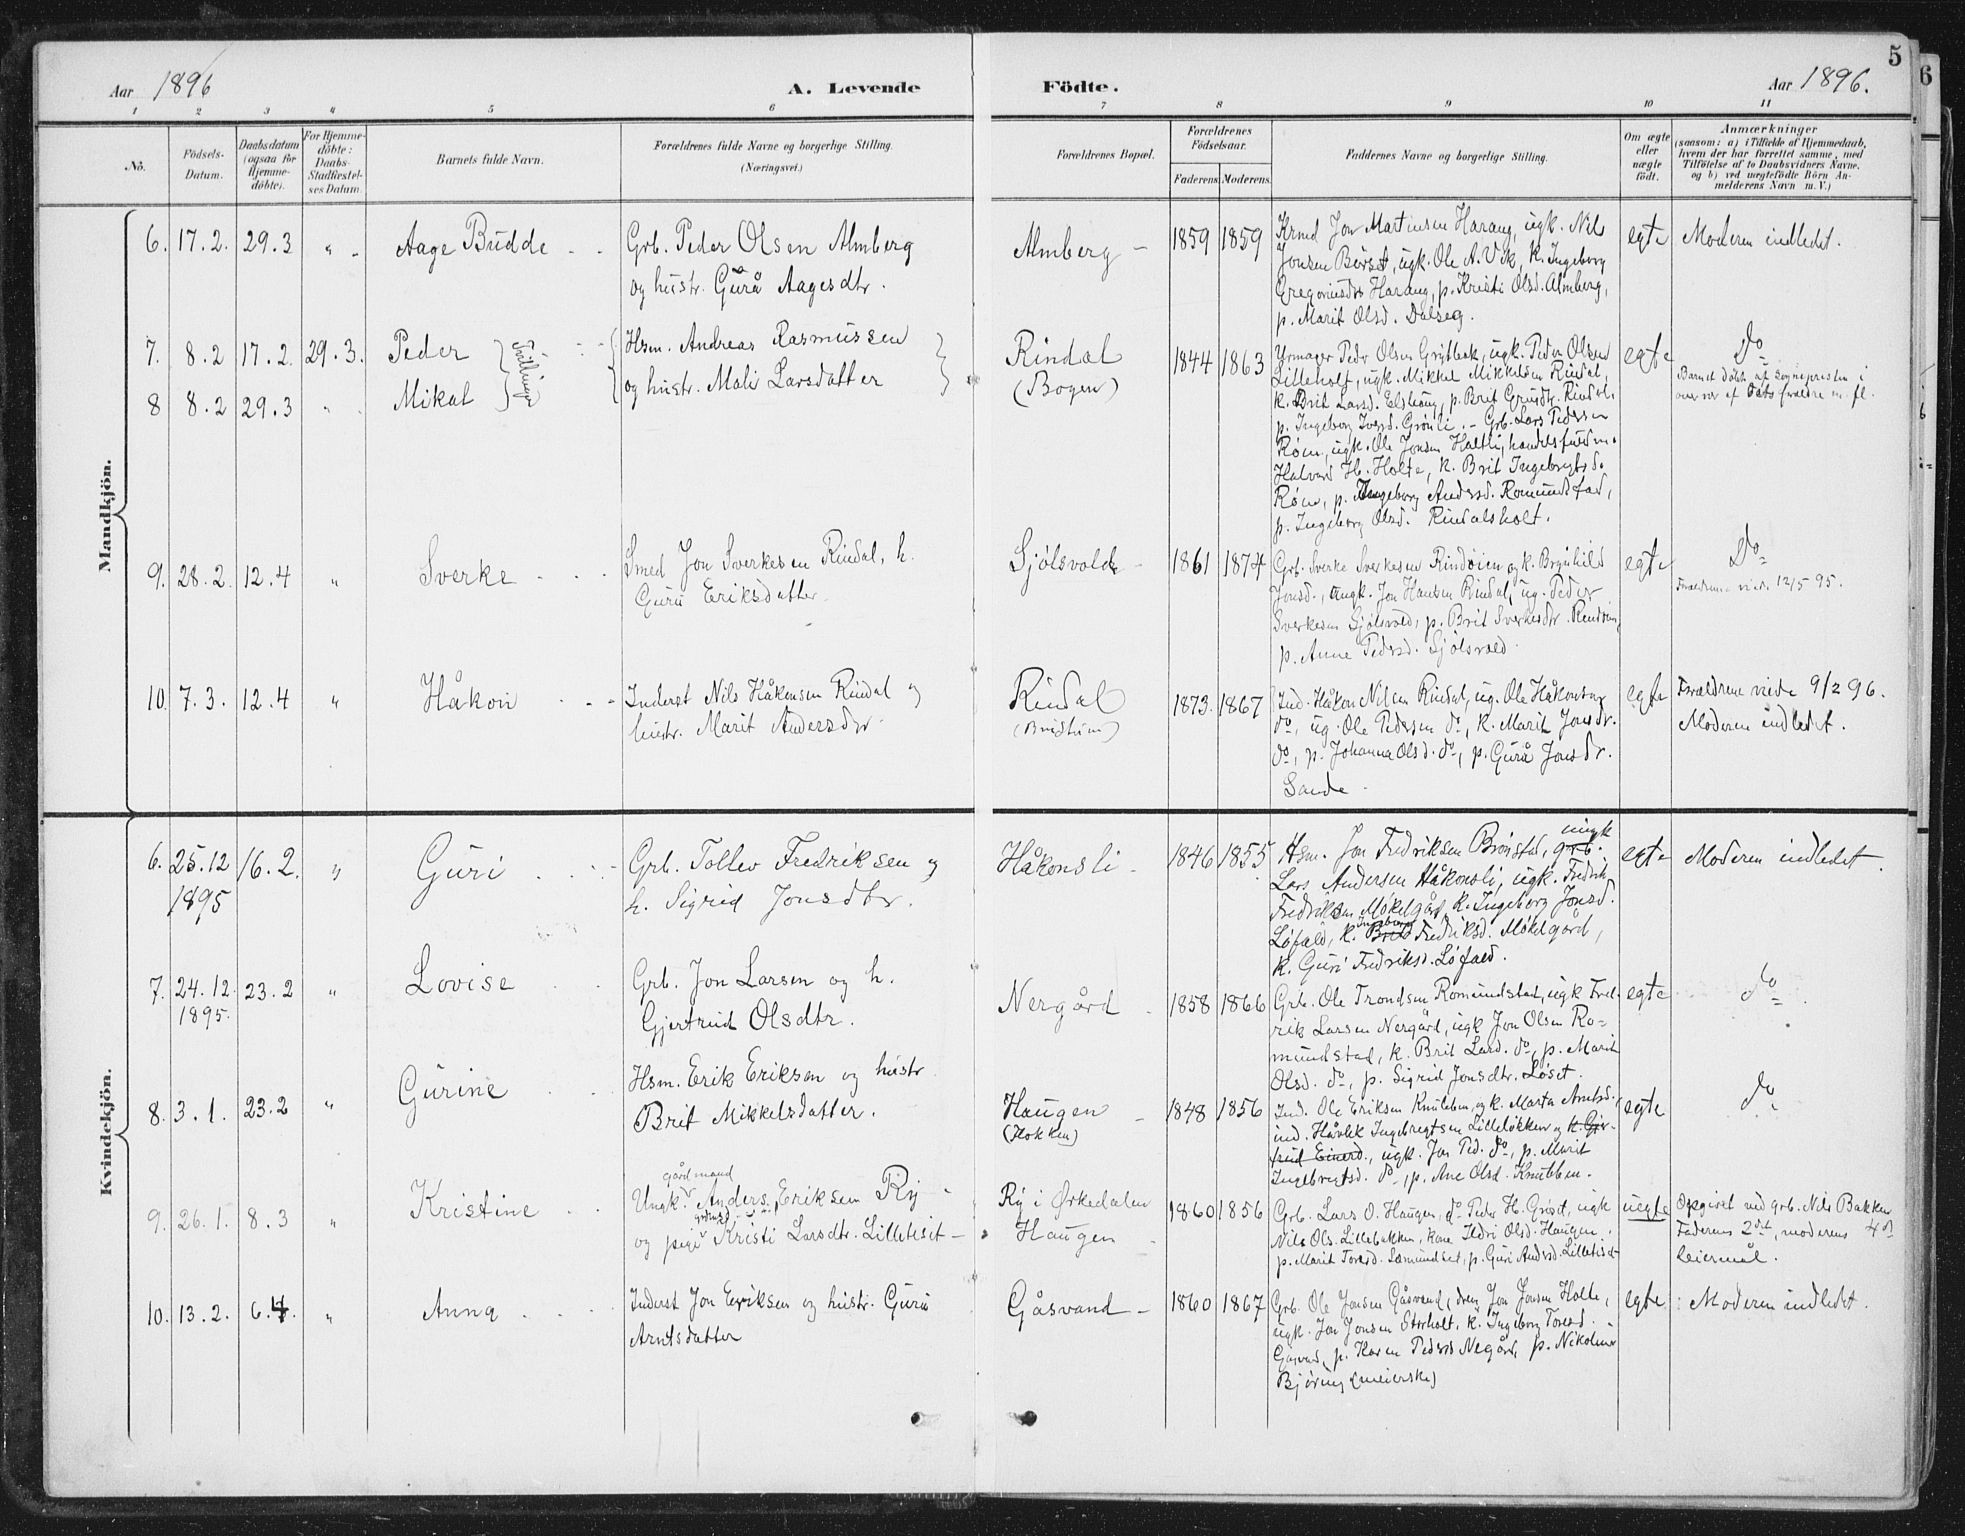 5
6
Aar 1896
A. Levende
Födte.
Aar 1896.
1 2 3 4 5 6 7 8 9 10 11
Nô.
Födsels-
Datum.
Daabsdatum
(ogsaa for
Hjemme-
döbte).
For Hjemme-
döbte:
Daabs-
Stadfæstel-
ses Datum.
Barnets fulde Navn.
Forældrenes fulde Navne og borgerlige Stilling.
(Næringsvei.)
Forældrenes Bopæl.
Forældrenes
Födselsaar.
Faderens
Moderens
Faddernes Navne og borgerlige Stilling.
Om ægte
eller
uægte
födt.
Anmærkninger
(saasom: a) i Tilfælde af Hjemmedaab,
hvem der har forrettet samme, med
Tilföielse af to Daabsvidners Navne,
og b) ved uægtefödte Börn An-
melderens Navn m. V.)
Mandkjön.
6. 17.2. 29.3 " Aage Budde
Grb. Peder Olsen Almberg
og hustr. Gurå Aagesdtr.
Almberg
1859 1859
Krmd Jon Martinsen Harang, ugk. Nils
Jonsen Børset, ugk. Ole A. Vik, k. Ingeborg
Gregoriusdtr Harang, p. Kristi Olsd. Almberg,
p. Marit Olsd. Dalseg.
egte
Moderen indledet.
7. 8.2 17.2. 29.3. Peder
8 8.2 29.3 " Mikal
Tvillinger
Hsm. Andreas Rasmussen
og hustr. Mali Larsdatter
Rindal
(Bogen)
1844 1863
Urmager Peder Olsen Grytbak, ugk. Peder Olsen
Lilleholt, ugk. Mikkel Mikkelsen Rindal,
k. Brit Larsd. Elshaug, p. Brit Gruedtr. Rindal,
p. Ingeborg Iversd. Grønli. - Grb. Lars Pedersen
Røen, ugk. Ole Jonsen Haltli, handelsfuldm.
Halvard H. Holte, k. Brit Ingebrigtsd.
Røen, p. Ingeborg Andersd. Romundstad,
p. Ingeborg Olsd. Rindalsholt.
egte
Do
Barnet døbt af sognepresten i
overvær af Fats foraldre m. fl.
9. 28.2. 12.4 " Sverke
Smed Jon Sverkesen Rindal, h.
Guru Eriksdatter
Sjølsvold
1861 1874
Grb. Sverke Sverkesen Rindøien og k. Brynhild
Jonsd., ungk. Jon Hansen Rindal, ug. Peder
Sverkesen Sjølsvold, p. Brit Sverkesdtr. Rindøien,
p. Anne Pedersd. Sjølsvold.
egte
Do
Forældrene viede 12/5 95.
10. 7.3. 12.4 " Håkon
Inderst Nils Håkonsen Rindal og
hustr. Marit Andersdtr
Rindal
1873. 1867
Ind. Håkon Nilsen Rindal, ug. Ole Håkonsen
do, ug. Ole Pedersen do, k. Marit Jonsdr.
do, p. Johanna Olsd. do, p. Gurå Jonsdr.
Sande.
egte
Forældrene viede 9/2 96.
Moderen indledet.
Kvindekjön.
6. 25.12 16.2. " Guri
1895
Grb. Tollev Fredriksen og
h. Sigrid Jonsdtr.
Håkonsli
1846 1855
Hsm. Jon Fredriksen Brønstad, grb. ungk
Lars Andersen Håkonsli, ugk. Fredrik
Fredriksen Møkelgård, k. Ingeborg Jonsd.
Løfald, k. Brit Ingeborg Fredriksd. Møkelgård,
k. Guri Fredriksd. Løfald.
egte
Moderen indledet.
7. 24.12. 23.2 " Lovise
1895.
Grb. Jon Larsen og h.
Gjertrud Olsdtr.
Nergård
1858 1866
Grb. Ole Trondsen Romundstad, ugk Fred-
rik Larsen Nergård, ugk Jon Olsen Ro-
mundstad, k. Brit Larsd. do, p. Marit
Olsd. do, p. Sigrid Jonsdtr. Løset.
egte
do
8. 3.1. 23.2 " Gurine
Hsm. Erik Eriksen og hustr
Brit Mikkelsdatter.
Haugen
(Flokken)
1848 1856
Ind. Ole Eriksen Knubben, og k. Marta Arntsd.,
ind. Håvkk Ingebregtsen Lilleløkken og k. Gjer-
trud Einersd., ugk. Jon Ped. do, p. Marit
Ingebregtsd. do, p. Ane Olsd. Knubben.
egte
do
9. 26.1. 8.3 " Kristine
gårdmand
Ungk. Anders Eriksen Ry
og pige Kristi Larsdtr. Lilletiset
Ry i Ørkedalen
Haugen
1860 1856
Grb. Lars O. Haugen, do Peder H. Grøset, ugk
Nils Ols. Lillebakken, kone Ildri Olsd. Haugen,
p. Marit Toresd. Sæmundset, p. Guri Andersd. Lilletiset
uegte
Opgivet ved grb. Nils Bakken
Faderens 2det, moderens 4de
leiermål.
10. 13.2. 6.4. " Anna
Inderst Jon Eriksen og hustr. Guru
Arntsdatter
Gåsvand
1860 1867
Grb. Ole Jonsen Gåsvand, dreng Jon Jonsen Holte,
ugk. Jon Jonsen Storholt, k. Ingeborg Toresd.
Gåsvand, p. Karen Pedersd Negård, p. Nikoline
Bjøring (meierske)
egte
Moderen indledet.